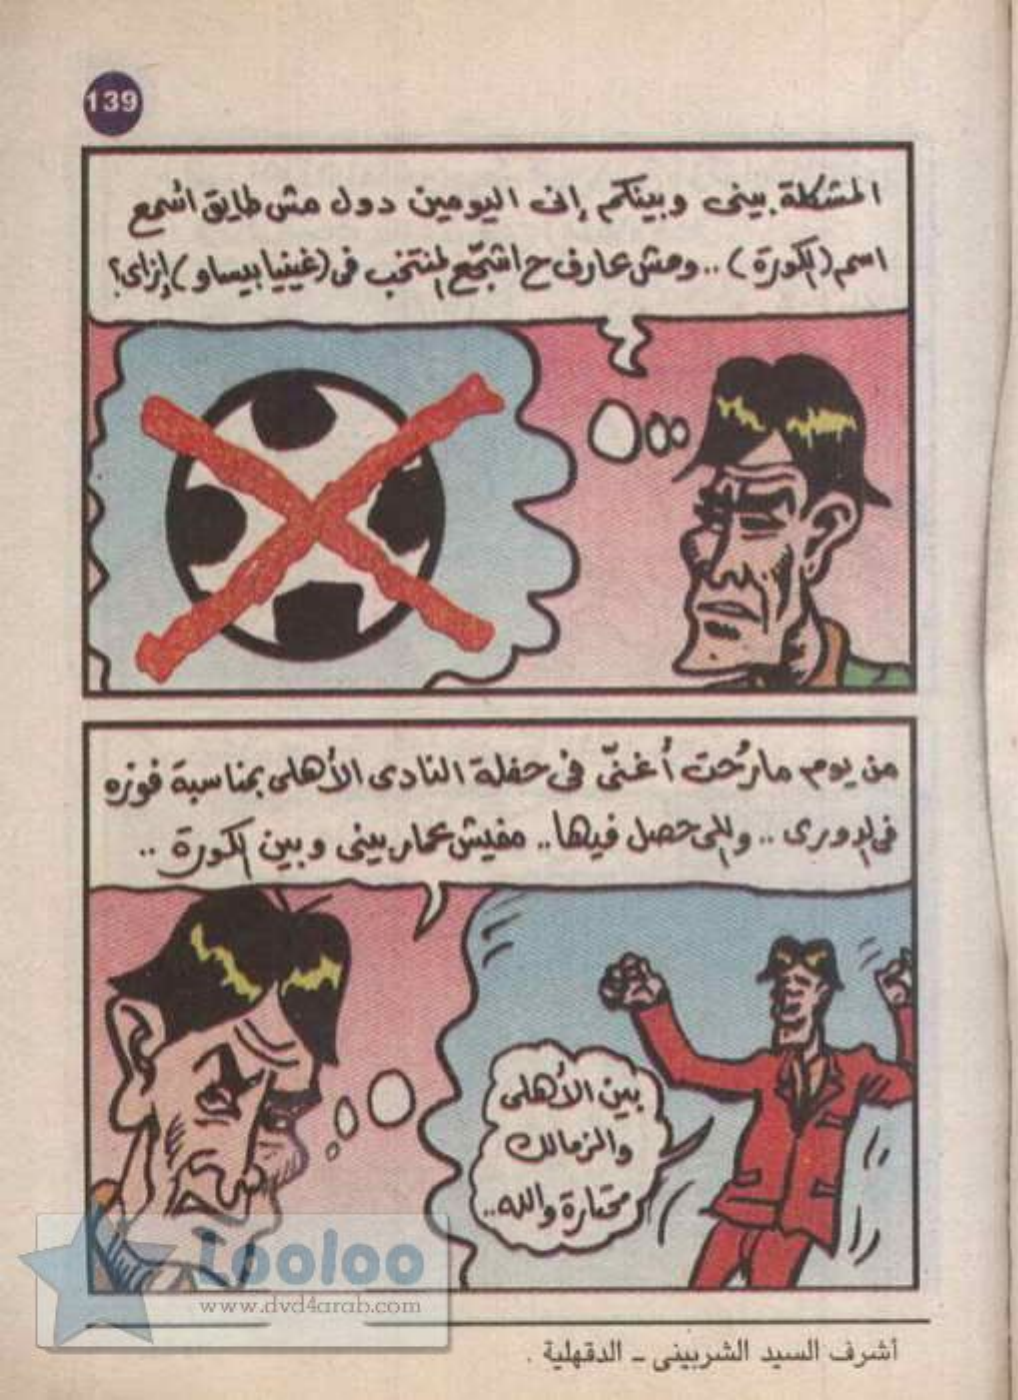 139
المشكلة بينى وبينكم إنى اليومين دول مش طايق أسمع
اسم (الكورة) .. ومش عارف ح اشجّع المنتخب فى (غينيا بيساو) إزاى؟
من يوم مارُحت أُغنّى فى حفلة النادى الأهلى بمناسبة فوزه
فى الدورى .. واللى حصل فيها .. مفيش عمار بينى وبين الكورة ..
بين الأهلى
والزمالك
محتارة والله ..
Looloo
www.dvd4arab.com
أشرف السيد الشربينى - الدقهلية .